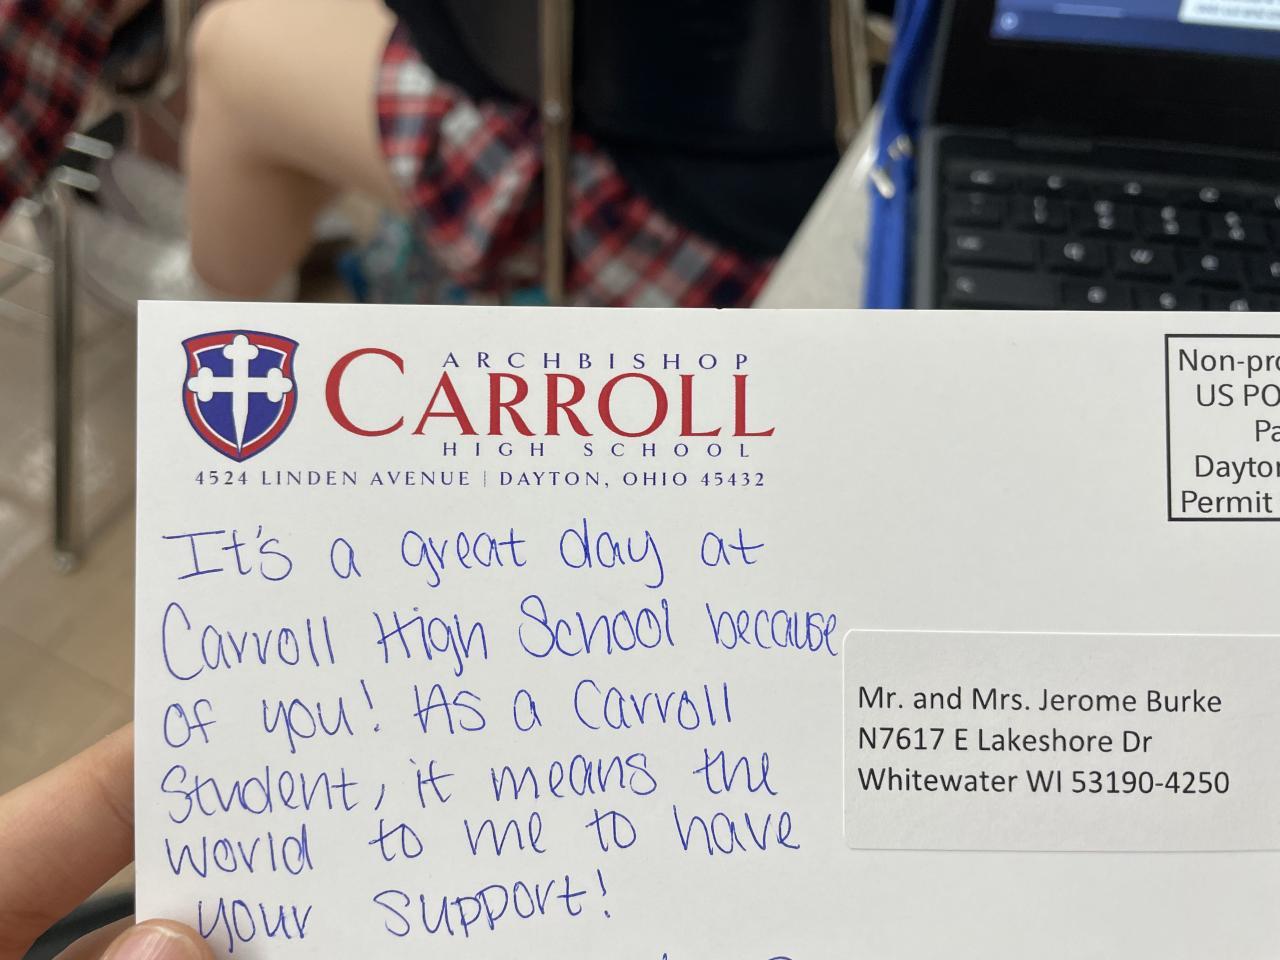 ARCHBISHOP
CARROLL
HIGH SCHOOL
4524 LINDEN AVENUE | DAYTON, OHIO 45432
Non-pro
US PO
Pa
Dayton
Permit
It's a great day at
Carroll High School because
of you! As a Carroll
Student, it means the
world to me to have
your support!
Mr. and Mrs. Jerome Burke
N7617 E Lakeshore Dr
Whitewater WI 53190-4250